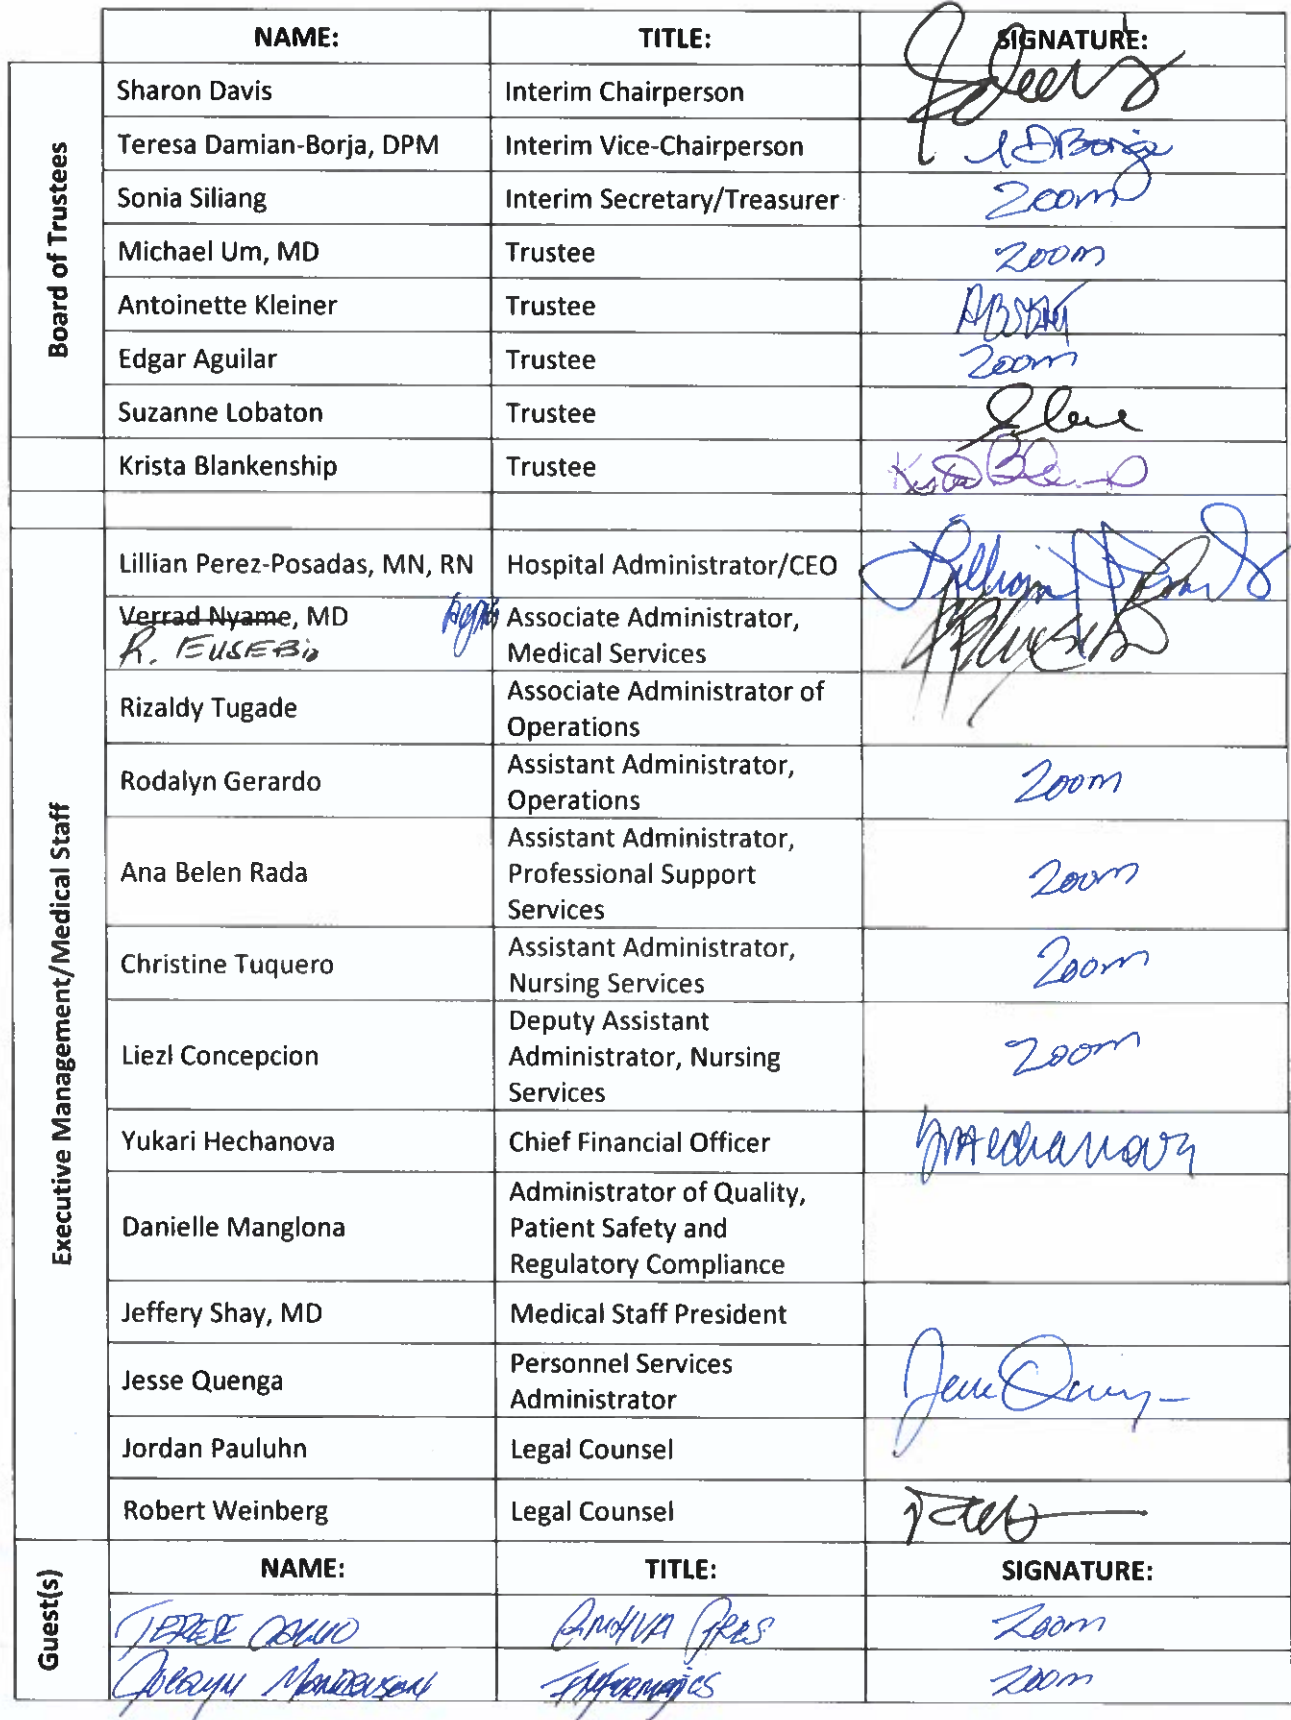 NAME: TITLE: SIGNATURE:
Board of Trustees
Sharon Davis Interim Chairperson
Teresa Damian-Borja, DPM Interim Vice-Chairperson
Sonia Siliang Interim Secretary/Treasurer Zoom
Michael Um, MD Trustee Zoom
Antoinette Kleiner Trustee
Edgar Aguilar Trustee Zoom
Suzanne Lobaton Trustee
Krista Blankenship Trustee
Executive Management/Medical Staff
Lillian Perez-Posadas, MN, RN Hospital Administrator/CEO
Verrad Nyame, MD Associate Administrator,
R. EUSEBIO Medical Services
Rizaldy Tugade Associate Administrator of
Operations
Rodalyn Gerardo Assistant Administrator,
Operations Zoom
Assistant Administrator,
Ana Belen Rada Professional Support Zoom
Services
Christine Tuquero Assistant Administrator,
Nursing Services Zoom
Deputy Assistant
Liezl Concepcion Administrator, Nursing Zoom
Services
Yukari Hechanova Chief Financial Officer
Administrator of Quality,
Danielle Manglona Patient Safety and
Regulatory Compliance
Jeffery Shay, MD Medical Staff President
Jesse Quenga Personnel Services
Administrator
Jordan Pauluhn Legal Counsel
Robert Weinberg Legal Counsel
Guest(s)
NAME: TITLE: SIGNATURE:
TERESE Zoom
INFORMATICS Zoom